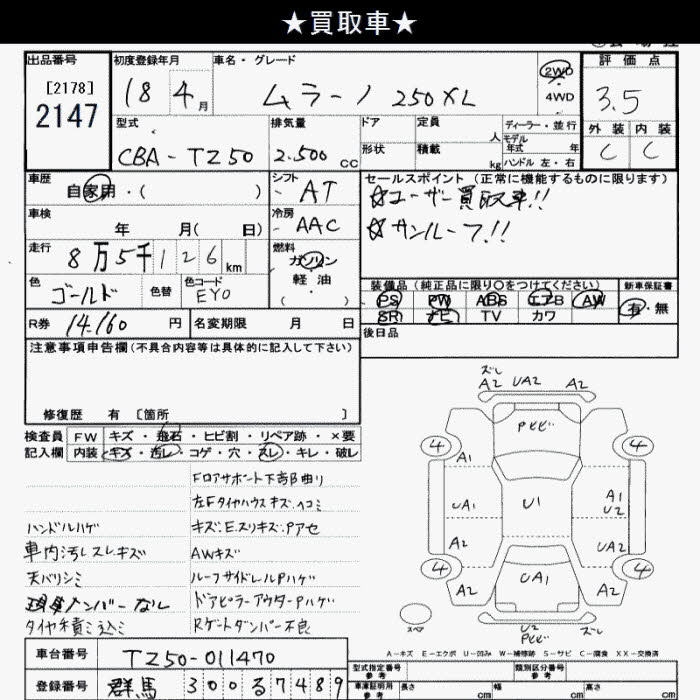 ★買取車★
出品番号 初度登録年月 車名・グレード 2WD 評価点
[2178] 18 4月 ムラーノ 250XL 4WD 3.5
2147
型式 排気量 ドア 定員 人 ディーラー・並行 外装 内装
CBA-TZ50 2.500cc 形状 積載 kg モデル年式 年 ハンドル 左・右 C C
車歴 自家用・( ) シフト AT セールスポイント (正常に機能するものに限ります)
☆ユーザー買取車!!
車検 年 月( 日) 冷房 AAC ☆サンルーフ!!
走行 8万5千126km 燃料 ガソリン
軽・油
・( )
色 ゴールド 色替 色コード EY0 装備品 (純正品に限り○をつけてください) 新車保証書
PS PW ABS エアB AW 有・無
R券 14.160円 名変期限 月 日 SR ナビ TV カワ
注意事項申告欄(不具合内容等は具体的に記入して下さい) 後日品
修復歴 有 [箇所 ]
検査員 FW キズ・飛石・ヒビ割・リペア跡・×要
記入欄 内装 キズ・汚レ・コゲ・穴・スレ・キレ・破レ
Fロアサポート下部曲り
左Fタイヤハウスキズ.ヘコミ
ハンドルハゲ キズ.E.スリキズ.Pアセ
車内汚レスレキズ AWキズ
天バリシミ ルーフサイドレールPハゲ
現車ナンバーなし ドアピラーアウターPハゲ
タイヤ積ミ込ミ Rゲートダンパー不良
ズレ
A2 UA2 A2
Pヒビ
4 4
A1
UA1 U1 A1
U2
A2 UA2
4 4
A2 UA1 A2
スペ U2 ズレ
Pヒビ
A-キズ E-エクボ U-凹み W-補修跡 S-サビ C-腐食 XX-交換済
車台番号 TZ50-011470
型式指定番号 参考 類別区分番号 参考
登録番号 群馬 300 る 7489
車庫証明用 参考 長さ cm 幅 cm 高さ cm